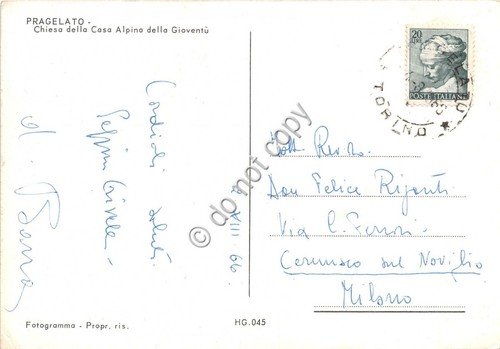 PRAGELATO -
Chiesa della Casa Alpina della Gioventù
20
LIRE
POSTE ITALIANE
PRAGELATO
TORINO
Cordiali saluti
Peppino
2 VIII 66.
do not copy
Rev.do
Don Felice
Via C. Ferrari
Cernusco sul Naviglio
Milano
Fotogramma - Propr. ris.
HG.045